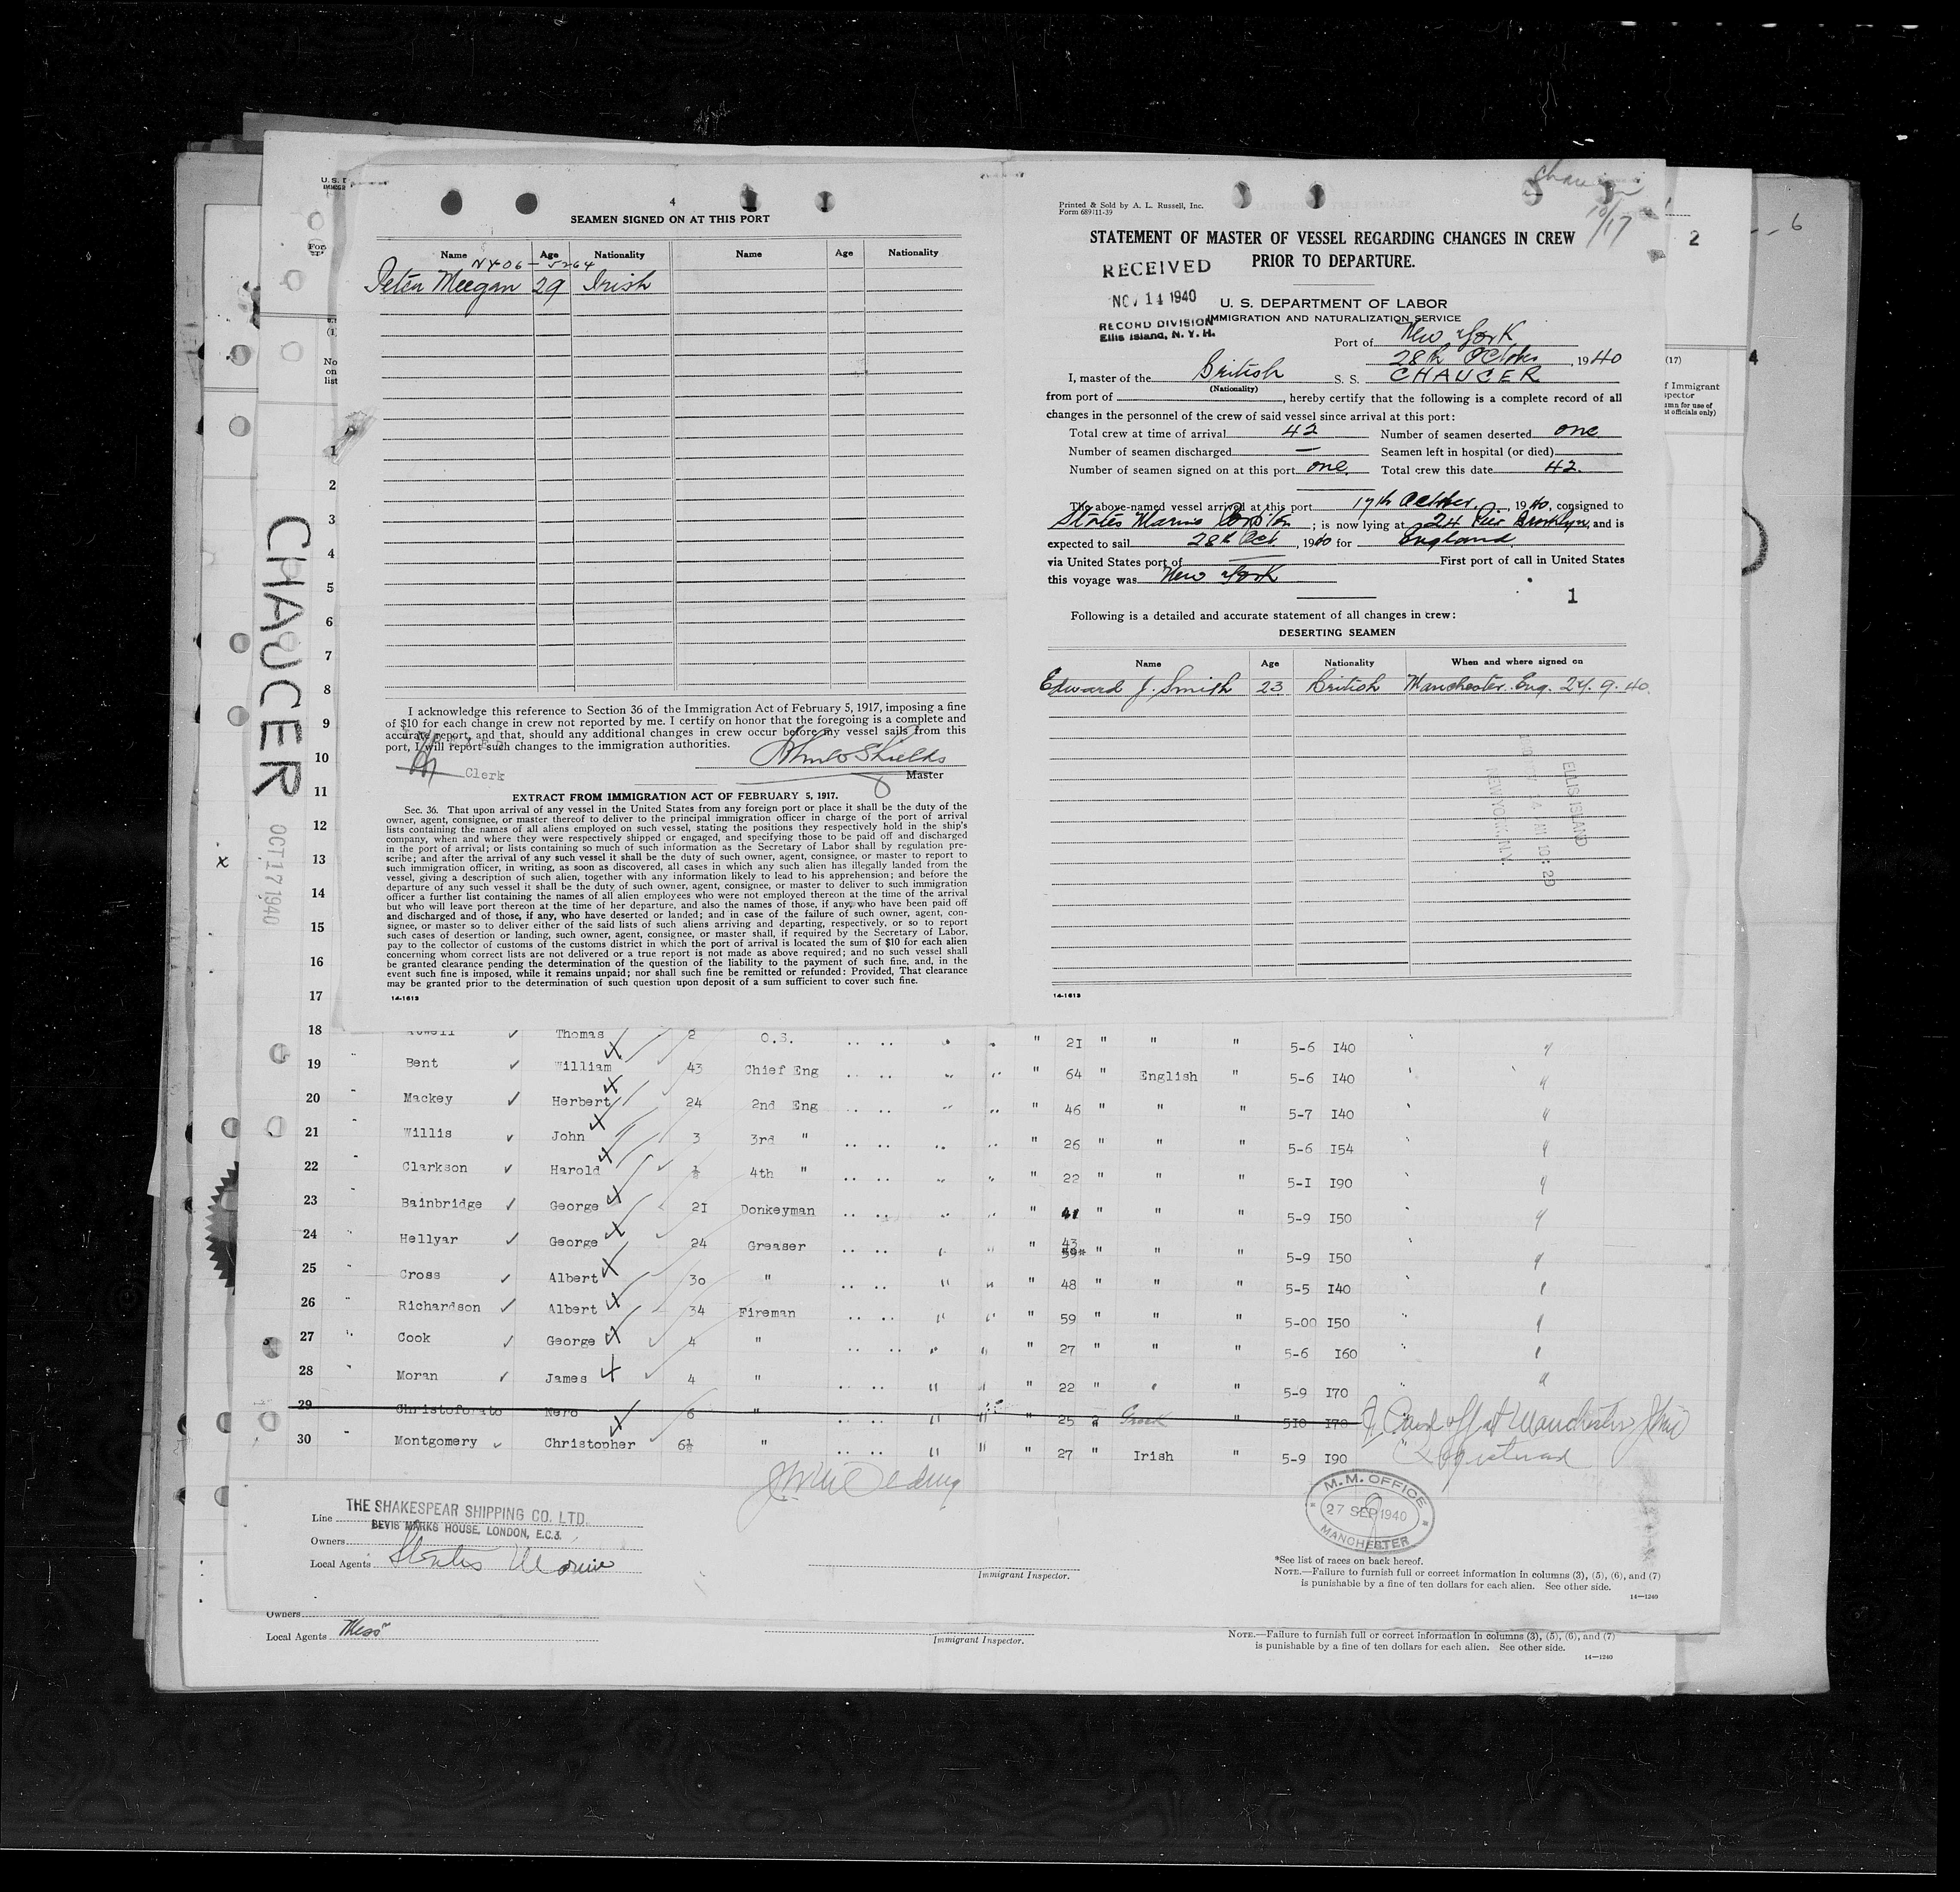 4
SEAMEN SIGNED ON AT THIS PORT
Name Age Nationality Name Age Nationality
NY06-5264
Peter Meegan 29 Irish
I acknowledge this reference to Section 36 of the Immigration Act of February 5, 1917, imposing a fine
of $10 for each change in crew not reported by me. I certify on honor that the foregoing is a complete and
accurate report, and that, should any additional changes in crew occur before my vessel sails from this
port, I will report such changes to the immigration authorities.
Clerk
Master
EXTRACT FROM IMMIGRATION ACT OF FEBRUARY 5, 1917.
Sec. 36. That upon arrival of any vessel in the United States from any foreign port or place it shall be the duty of the
owner, agent, consignee, or master thereof to deliver to the principal immigration officer in charge of the port of arrival
lists containing the names of all aliens employed on such vessel, stating the positions they respectively hold in the ship's
company, when and where they were respectively shipped or engaged, and specifying those to be paid off and discharged
in the port of arrival; or lists containing so much of such information as the Secretary of Labor shall by regulation pre-
scribe; and after the arrival of any such vessel it shall be the duty of such owner, agent, consignee, or master to report to
such immigration officer, in writing, as soon as discovered, all cases in which any such alien has illegally landed from the
vessel, giving a description of such alien, together with any information likely to lead to his apprehension; and before the
departure of any such vessel it shall be the duty of such owner, agent, consignee, or master to deliver to such immigration
officer a further list containing the names of all alien employees who were not employed thereon at the time of the arrival
but who will leave port thereon at the time of her departure, and also the names of those, if any, who have been paid off
and discharged and of those, if any, who have deserted or landed; and in case of the failure of such owner, agent, con-
signee, or master so to deliver either of the said lists of such aliens arriving and departing, respectively, or so to report
such cases of desertion or landing, such owner, agent, consignee, or master shall, if required by the Secretary of Labor,
pay to the collector of customs of the customs district in which the port of arrival is located the sum of $10 for each alien
concerning whom correct lists are not delivered or a true report is not made as above required; and no such vessel shall
be granted clearance pending the determination of the question of the liability to the payment of such fine, and, in the
event such fine is imposed, while it remains unpaid; nor shall such fine be remitted or refunded: Provided, That clearance
may be granted prior to the determination of such question upon deposit of a sum sufficient to cover such fine.
14-1613
Printed & Sold by A. L. Russell, Inc.
Form 689 11-39
10/17
STATEMENT OF MASTER OF VESSEL REGARDING CHANGES IN CREW
PRIOR TO DEPARTURE.
RECEIVED
NOV 14 1940
RECORD DIVISION
Ellis Island, N. Y. H.
U. S. DEPARTMENT OF LABOR
IMMIGRATION AND NATURALIZATION SERVICE
Port of New York
28th October, 1940
I, master of the British S. S. CHAUCER
(Nationality)
from port of , hereby certify that the following is a complete record of all
changes in the personnel of the crew of said vessel since arrival at this port:
Total crew at time of arrival 42 Number of seamen deserted one
Number of seamen discharged — Seamen left in hospital (or died)
Number of seamen signed on at this port one Total crew this date 42.
The above-named vessel arrived at this port 17th October, 1940, consigned to
States Marine ; is now lying at 24 Pier Brooklyn, and is
expected to sail 28th Oct, 1940 for England
via United States port of First port of call in United States
this voyage was New York
1
Following is a detailed and accurate statement of all changes in crew:
DESERTING SEAMEN
Name Age Nationality When and where signed on
Edward J. Smith 23 British Manchester. Eng. 27. 9. 40.
ELLIS ISLAND
NEW YORK, N.Y.
14-1613
2
6
(17)
4
f Immigrant
CHAUCER
OCT 17 1940
No
on
list
1
2
3
4
5
6
7
8
9
10
11
12
13
14
15
16
17
18 Thomas 2 O.S. " 21 " " " 5-6 I40
19 Bent William 43 Chief Eng " 64 " English " 5-6 I40
20 Mackey Herbert 24 2nd Eng " 46 " " " 5-7 I40
21 Willis John 3 3rd " " 26 " " " 5-6 I54
22 Clarkson Harold ½ 4th " " 22 " " " 5-I I90
23 Bainbridge George 2I Donkeyman " 41 " " " 5-9 I50
24 Hellyar George 24 Greaser " 43 " " " 5-9 I50
25 Cross Albert 30 " " 48 " " " 5-5 I40
26 Richardson Albert 34 Fireman " 59 " " " 5-00 I50
27 Cook George 4 " " 27 " " " 5-6 I60
28 Moran James 4 " " 22 " " " 5-9 I70
29 Christoforato Nero 6 " " 25 " Greek " 5I0 I70 Paid off at Manchester
30 Montgomery Christopher 6½ " " 27 " Irish " 5-9 I90
Line THE SHAKESPEAR SHIPPING CO. LTD.
BEVIS MARKS HOUSE, LONDON, E.C.3.
Owners
Local Agents States Marine
Immigrant Inspector.
M. M. OFFICE
27 SEP 1940
MANCHESTER
*See list of races on back hereof.
NOTE.—Failure to furnish full or correct information in columns (3), (5), (6), and (7)
is punishable by a fine of ten dollars for each alien. See other side.
14—1240
Owners
Local Agents Messrs
Immigrant Inspector.
NOTE.—Failure to furnish full or correct information in columns (3), (5), (6), and (7)
is punishable by a fine of ten dollars for each alien. See other side.
14—1240